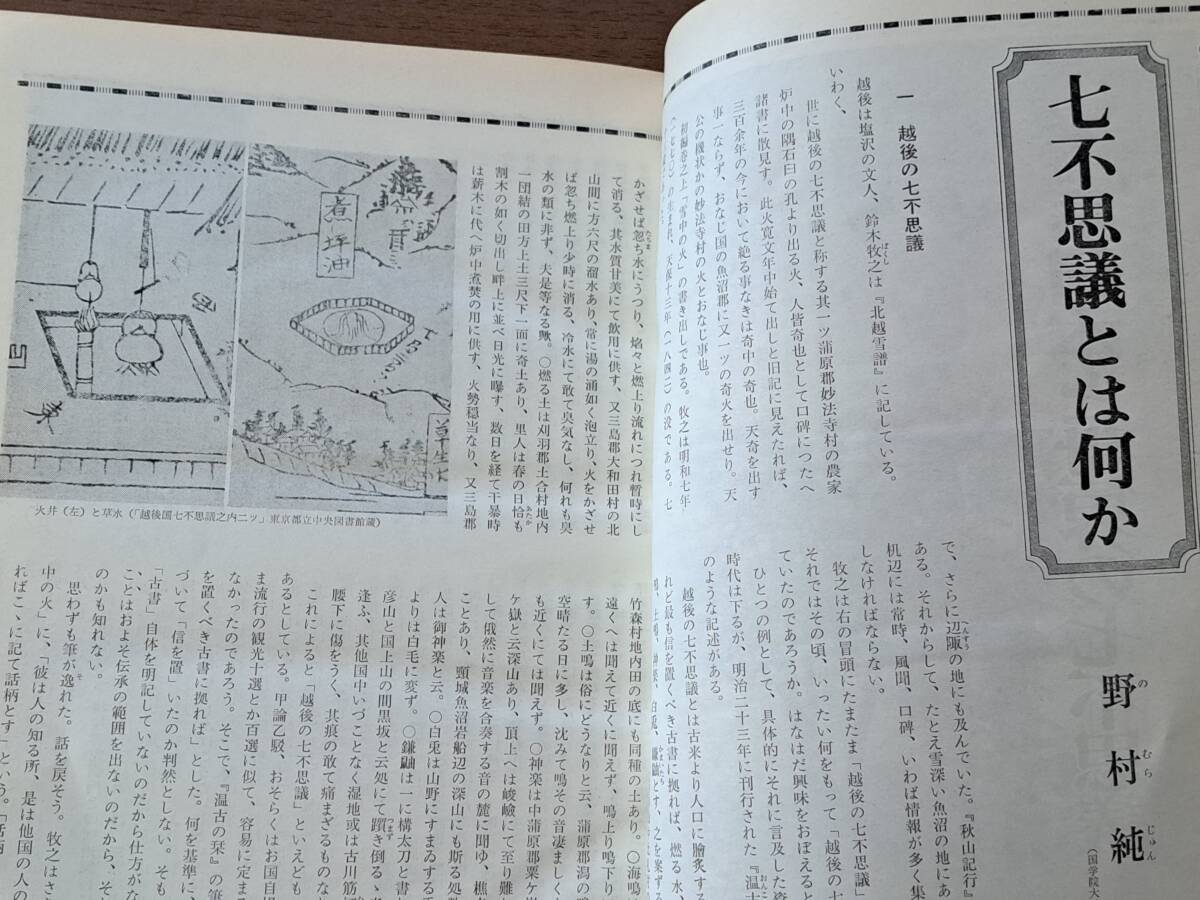 七不思議とは何か
野村純
のむらじゅん
(国学院大
一 越後の七不思議
越後は塩沢の文人、鈴木牧之は『北越雪譜』に記している。
いわく、
世に越後の七不思議と称する其一ッ蒲原郡妙法寺村の農家
炉中の隅石臼の孔より出る火、人皆奇也として口碑につたへ
諸書に散見す。此火寛文年中始て出しと旧記に見えたれば、
三百余年の今において絶る事なきは奇中の奇也。天奇を出す
事一ならず、おなじ国の魚沼郡に又一ッの奇火を出せり。天
公の機状かの妙法寺村の火とおなじ事也。
初編巻之上「雪中の火」の書き出しである。牧之は明和七年
(一七七〇)の生まれ、天保十三年(一八四二)の没である。七
で、さらに辺陬の地にも及んでいた。『秋山記行』
ある。それからして、たとえ雪深い魚沼の地にあ
机辺には常時、風聞、口碑、いわば情報が多く集
しなければならない。
牧之は右の冒頭にたまたま「越後の七不思議」
それではその頃、いったい何をもって「越後の七
ていたのであろうか。はなはだ興味をおぼえると
ひとつの例として、具体的にそれに言及した資
時代は下るが、明治二十三年に刊行された『温古
のような記述がある。
越後の七不思議とは古来より人口に膾炙する
れど最も信を置くべき古書に拠れば、燃る水、
鳴、土鳴、神楽、白兎、鎌鼬とす、之を案ずる
かざせば忽ち水にうつり、焔々と燃上り流れにつれ暫時にし
て消る、其水質甘美にて飲用に供す、又三島郡大和田村の北
山間に方六尺の溜水あり、常に湯の涌如く泡立り、火をかざせ
ば忽ち燃上り少時に消る、冷水にて敢て臭気なし、何れも臭
水の類に非ず、夫是等なる歟。〇燃る土は刈羽郡土合村地内
一団結の田方上土三尺下一面に奇土あり、里人は春の日恰も
割木の如く切出し畔上に並べ日光に曝す、数日を経て干暴時
は薪木に代へ炉中煮焚の用に供す、火勢穏当なり、又三島郡
煮坪油
草生水
東
火井(左)と草水(「越後国七不思議之内二ツ」東京都立中央図書館蔵)
竹森村地内田の底にも同種の土あり。〇海鳴は
遠くへは聞えて近くに聞えず、鳴上り鳴下り
す。〇土鳴は俗にどうなりと云、蒲原郡潟の鳴
空晴たる日に多し、沈みて鳴その音凄ましく
も近くにては聞えず。〇神楽は中蒲原郡粟ケ
ケ嶽と云深山あり、頂上へは峻嶮にて至り難
して俄然に音楽を合奏する音の麓に聞ゆ、樵
ことあり、頸城魚沼岩船辺の深山にも斯る処
人は御神楽と云。〇白兎は山野にすまゐる
よりは白毛に変ず。〇鎌鼬は一に構太刀と書
彦山と国上山の間黒坂と云処にて躓き倒るゝ
逢ふ、其他国中いづことなく湿地或は古川筋
腰下に傷をうく、其痕の敢て痛まざるものな
これによると「越後の七不思議」といえども
あるとしている。甲論乙駁、おそらくはお国自
ま流行の観光十選とか百選に似て、容易に定ま
なかったのであろう。そこで、『温古の栞』の筆
を置くべき古書に拠れば」とした。何を基準に、
づいて「信を置」いたのか判然としない。そも
「古書」自体を明記していないのだから仕方がな
い、ことはおよそ伝承の範囲を出ないのだから、そ
のかも知れない。
思わずも筆が逸れた。話を戻そう。牧之はさ
中の火」に、「彼は人の知る所、是は他国の人の
ればこゝに記て話柄とす」という。「話柄